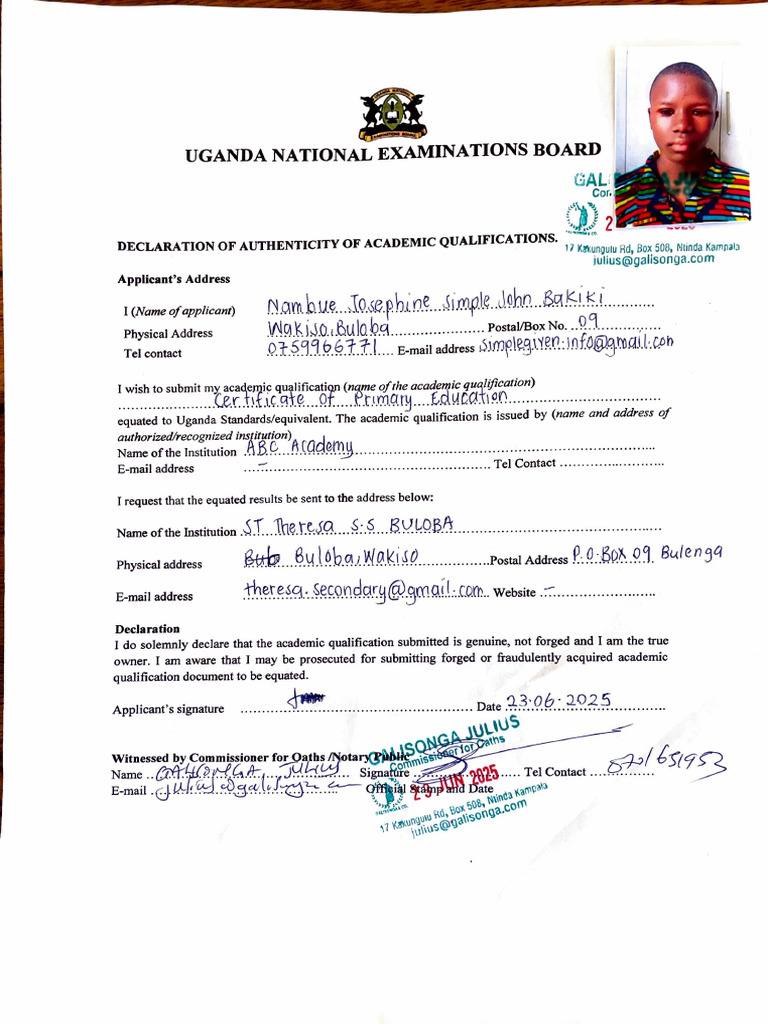 UGANDA NATIONAL EXAMINATIONS BOARD
GALISONGA JULIUS
17 Kakungulu Rd, Box 508, Ntinda Kampala
julius@galisonga.com
DECLARATION OF AUTHENTICITY OF ACADEMIC QUALIFICATIONS.
Applicant's Address
I (Name of applicant) Nambue Josephine Simple John Bakiki
Physical Address Wakiso, Buloba Postal/Box No. 09
Tel contact 0759966771 E-mail address simplegiven.info@gmail.com
I wish to submit my academic qualification (name of the academic qualification)
Certificate Of Primary Education
equated to Uganda Standards/equivalent. The academic qualification is issued by (name and address of
authorized/recognized institution)
Name of the Institution ABC Academy
E-mail address – Tel Contact
I request that the equated results be sent to the address below:
Name of the Institution ST Theresa S.S BULOBA
Physical address Buloba, Wakiso Postal Address P.O.Box 09 Bulenga
E-mail address theresa.secondary@gmail.com Website –
Declaration
I do solemnly declare that the academic qualification submitted is genuine, not forged and I am the true
owner. I am aware that I may be prosecuted for submitting forged or fraudulently acquired academic
qualification document to be equated.
Applicant's signature Date 23.06.2025
Witnessed by Commissioner for Oaths /Notary Public
GALISONGA JULIUS
Commissioner for Oaths
Name GALISONGA JULIUS Signature Tel Contact 0701651953
23 JUN 2025
E-mail julius@galisonga.com Official Stamp and Date
17 Kakungulu Rd, Box 508, Ntinda Kampala
julius@galisonga.com